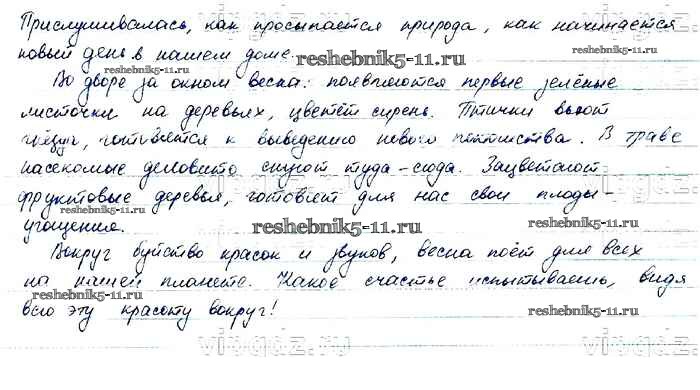 Прислушивалась, как просыпается природа, как начинается
новый день в нашем доме.
reshebnik5-11.ru
reshebnik5-11.ru
reshebnik5-11.ru
Во дворе за окном весна: появляются первые зелёные
листочки на деревьях, цветёт сирень. Птички вьют
гнёзда, готовятся к выведению нового потомства. В траве
насекомые деловито снуют туда-сюда. Зацветают
фруктовые деревья, готовят для нас свои плоды-
угощения.
reshebnik5-11.ru
reshebnik5-11.ru
reshebnik5-11.ru
Вокруг буйство красок и звуков, весна поёт для всех
на нашей планете. Какое счастье испытываешь, видя
всю эту красоту вокруг!
reshebnik5-11.ru
reshebnik5-11.ru